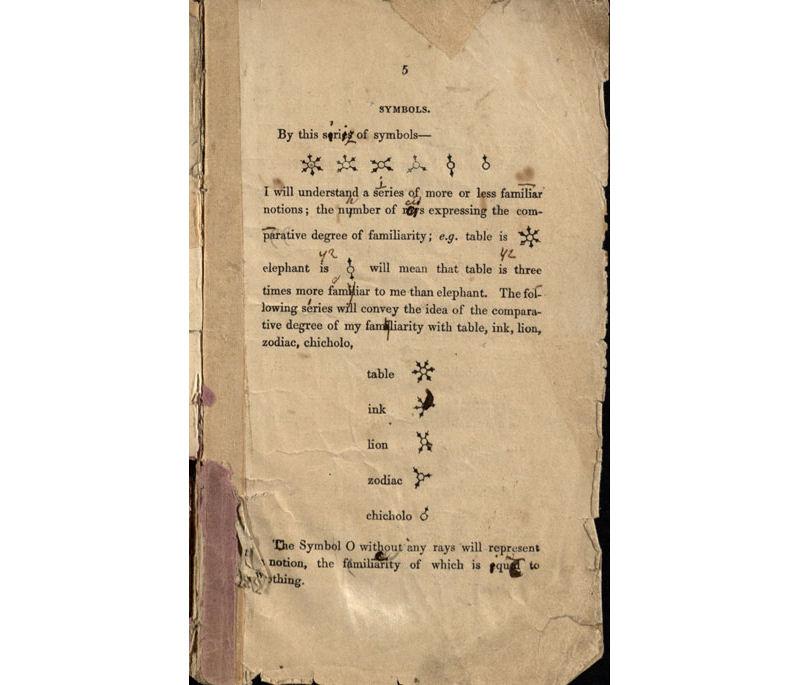 5
SYMBOLS.
By this series of symbols—
I will understand a series of more or less familiar
notions; the number of rays expressing the com-
parative degree of familiarity; e.g. table is
elephant is will mean that table is three
times more familiar to me than elephant. The fol-
lowing series will convey the idea of the compara-
tive degree of my familiarity with table, ink, lion,
zodiac, chicholo,
table
ink
lion
zodiac
chicholo
The Symbol O without any rays will represent
notion, the familiarity of which is equal to
othing.